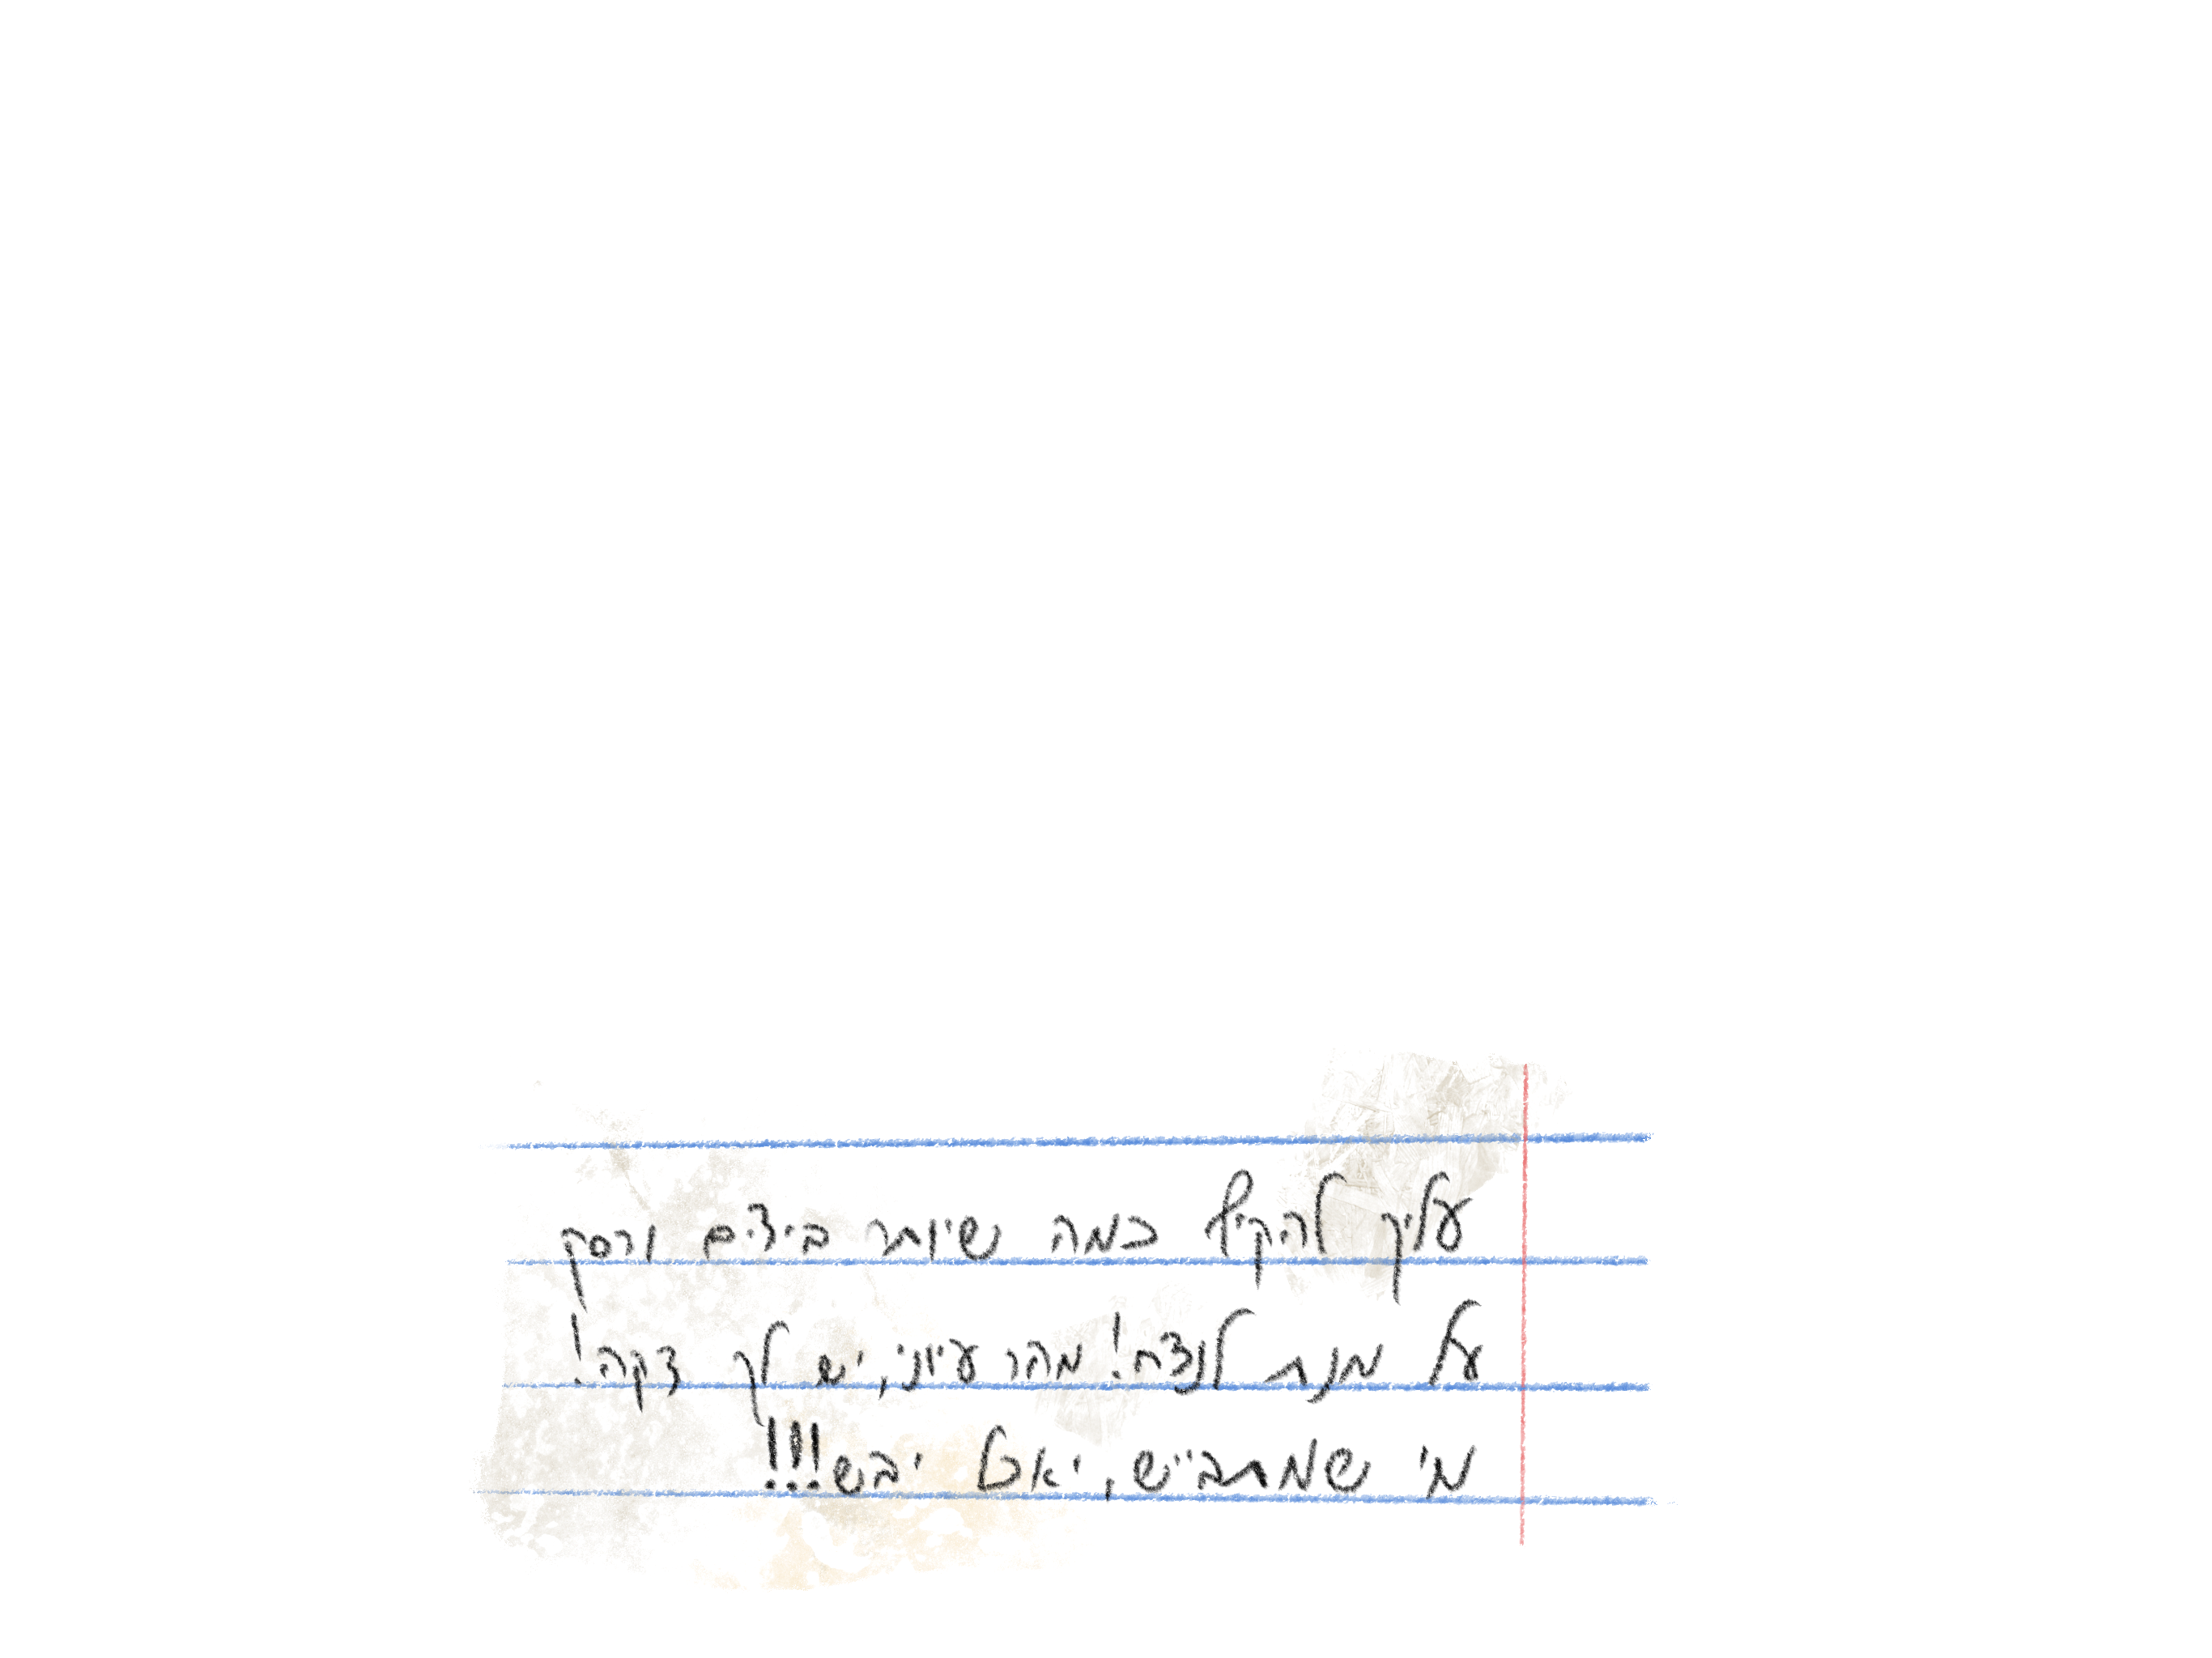 עליך להקיף כמה שיותר ביצים ורסק
על מנת לנצח! מהר עיוני, יש לך דקה!
מי שמתבייש, יאכל יבש!!!